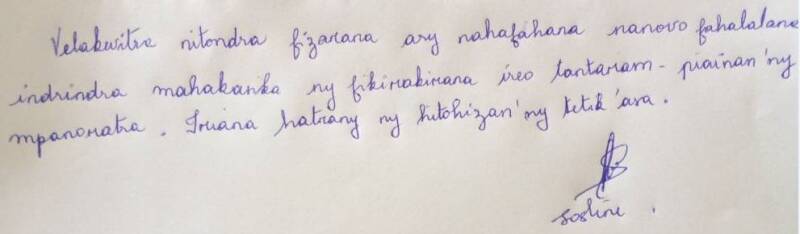 Velakevitra nitondra fizarana ary nahafahana nanovo fahalalana
indrindra mahakasika ny fikirakirana ireo tantaram-piainan'ny
mpanoratra. Iriana hatrany ny hitohizan'ny tetik'asa.
sosline.